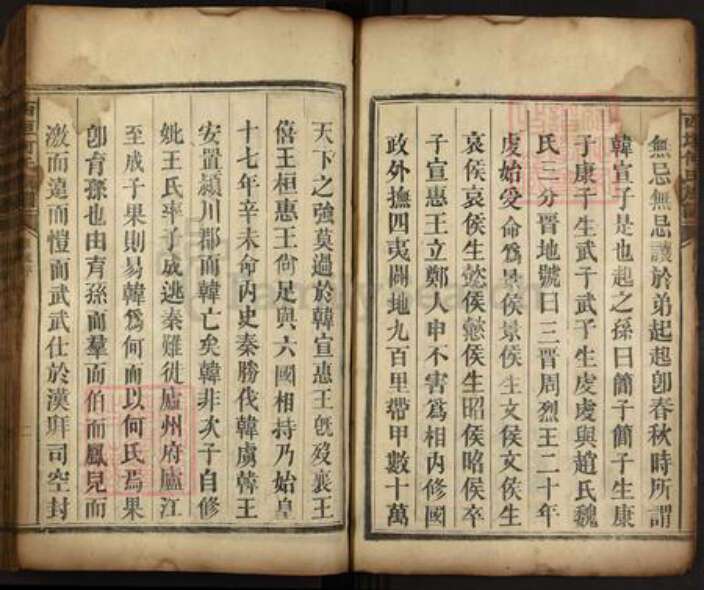 無忌無忌讓於弟起起卽春秋時所謂
韓宣子是也起之孫曰簡子簡子生康
子康子生武子武子生虔虔與趙氏魏
氏三分晉地號曰三晉周烈王二十年
虔始受命爲景侯景侯生文侯文侯生
哀侯哀侯生懿侯懿侯生昭侯昭侯卒
子宣惠王立鄭人申不害爲相內修國
政外撫四夷闢地九百里帶甲數十萬
天下之強莫過於韓宣惠王旣歿襄王
僖王桓惠王尙足與六國相持乃始皇
十七年辛未命內史秦勝伐韓虜韓王
安置潁川郡而韓亡矣韓非次子自修
妣王氏率子成逃秦難徙廬州府廬江
至成子果則易韓爲何而以何氏焉果
卽育孫也由育孫而羣而伯而鳳兒而
激而遠而愷而武武仕於漢拜司空封